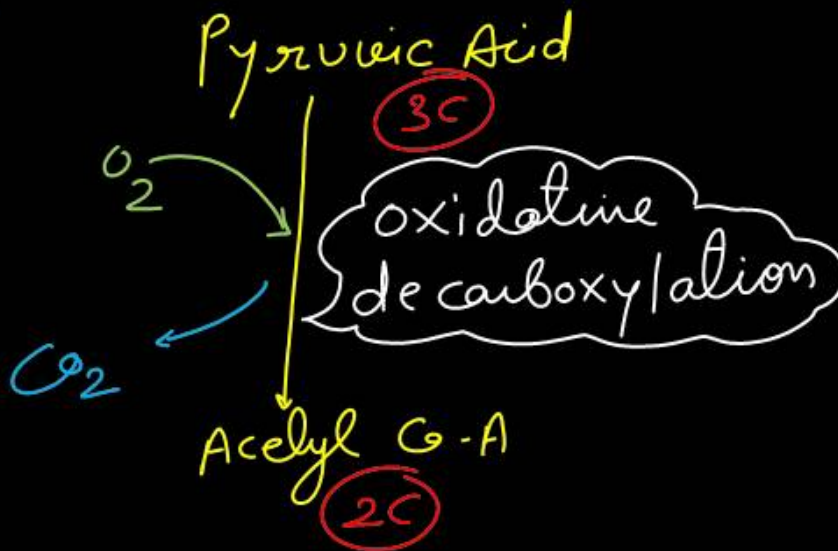 Pyruvic Acid
3C
O2
oxidative
decarboxylation
CO2
Acetyl Co-A
2C